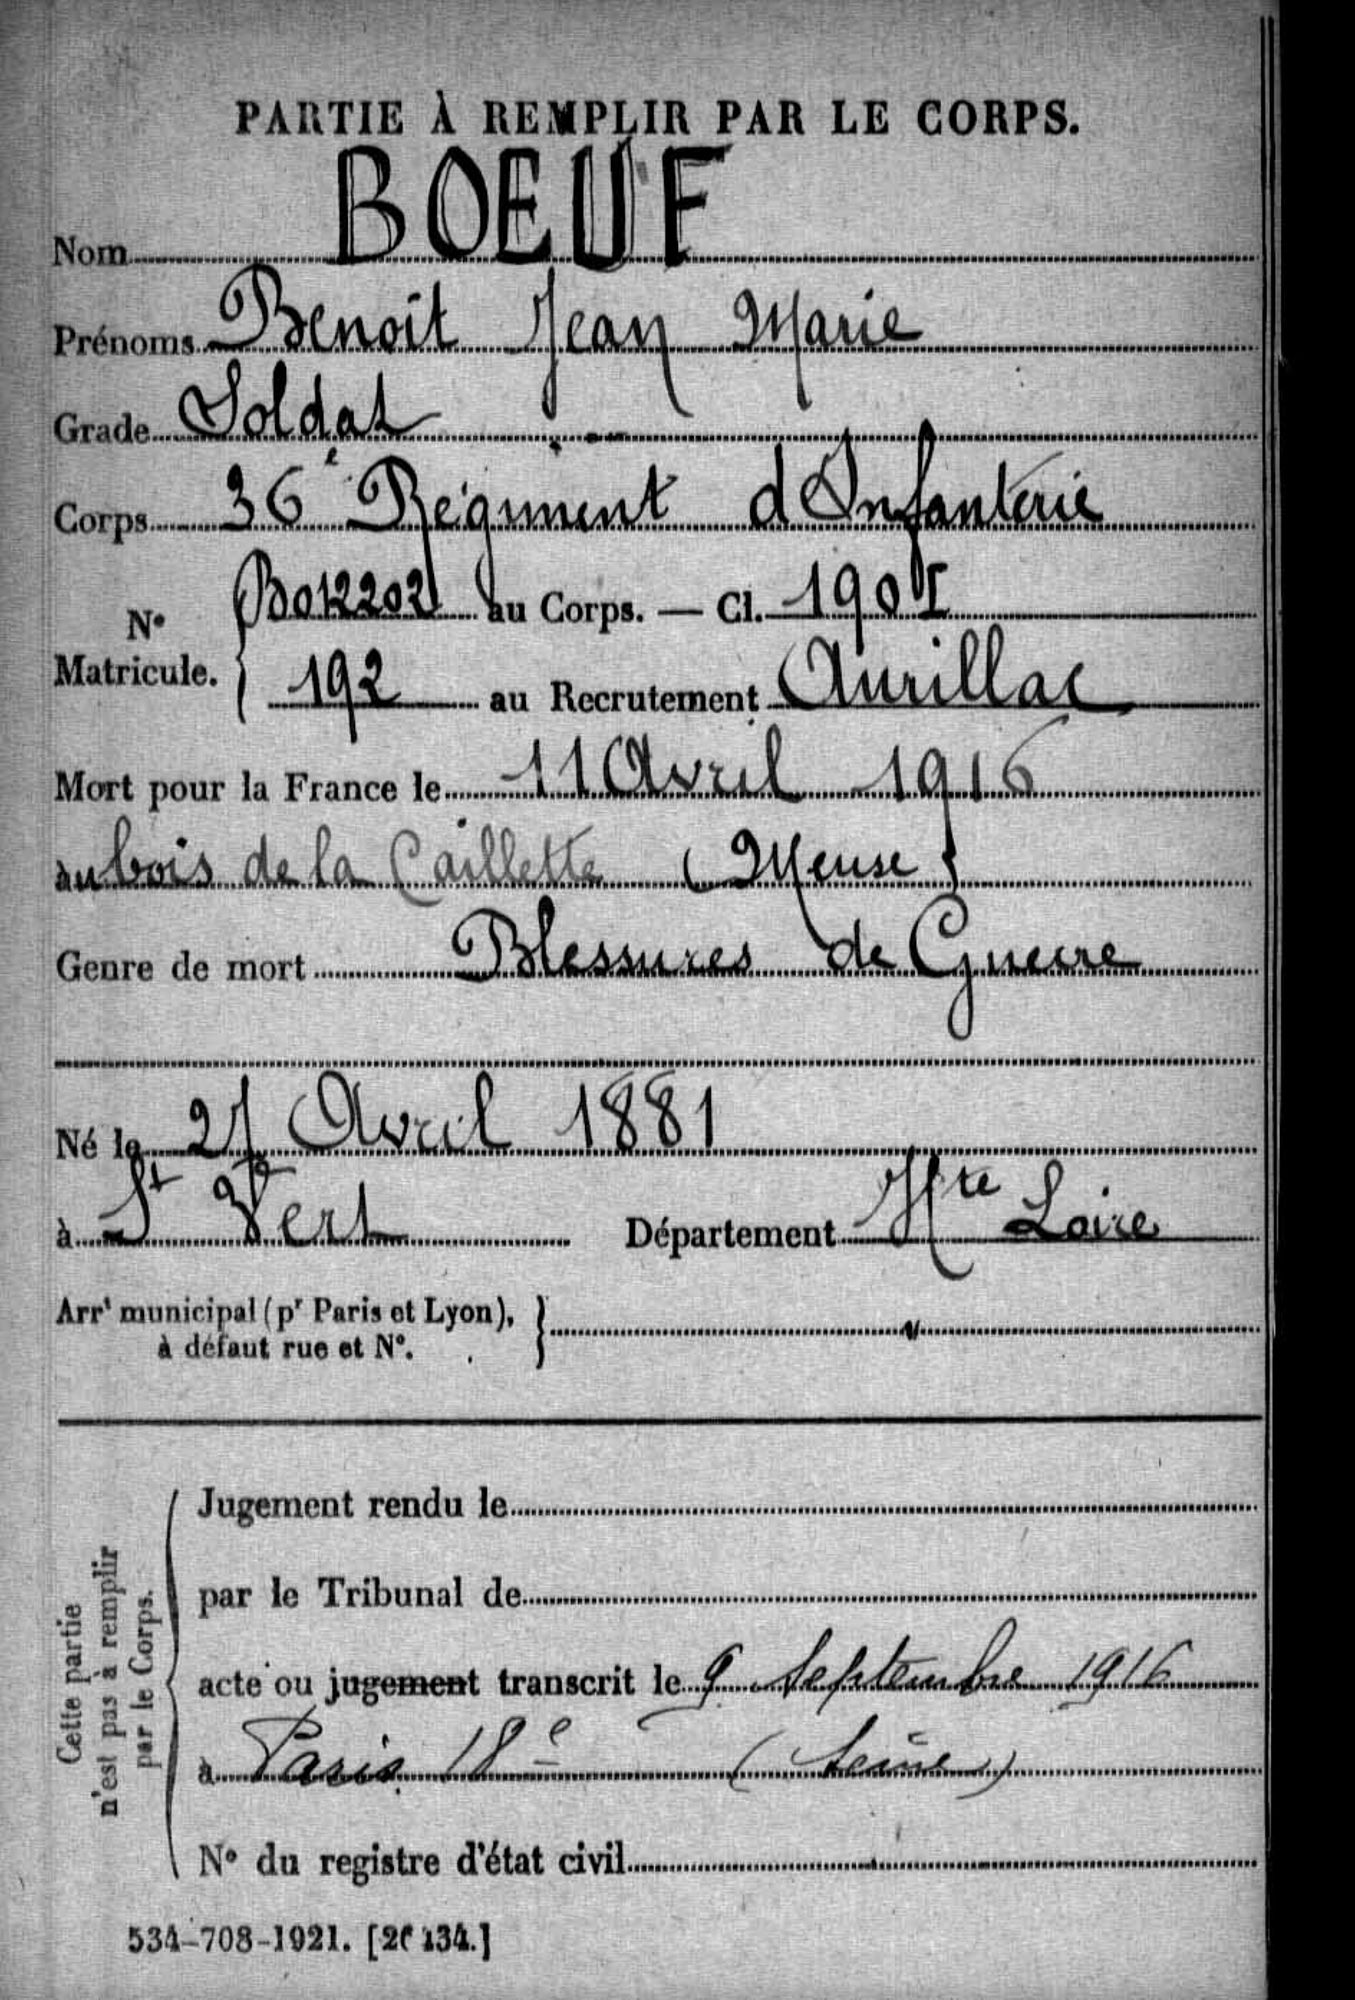 PARTIE À REMPLIR PAR LE CORPS.
Nom BOEUF
Prénoms Benoit Jean Marie
Grade Soldat
Corps 36e Régiment d'Infanterie
N° Matricule. { B012202 au Corps. — Cl. 1901
192 au Recrutement Aurillac
Mort pour la France le 11 Avril 1916
au bois de la Caillette (Meuse)
Genre de mort Blessures de Guerre
Né le 27 Avril 1881
à St Vert Département Hte Loire
Arrt municipal (pr Paris et Lyon), }
à défaut rue et N°.
Cette partie
n'est pas à remplir
par le Corps.
Jugement rendu le
par le Tribunal de
acte ou jugement transcrit le 9 Septembre 1916
à Paris 18e (Seine)
N° du registre d'état civil
534-708-1921. [26134.]